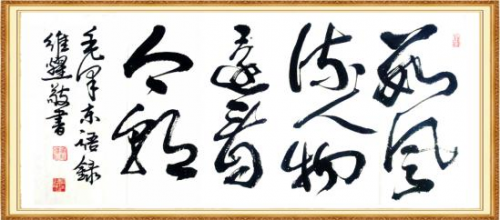 數風
流人物
還看
今朝
毛澤東語録
維耀敬書